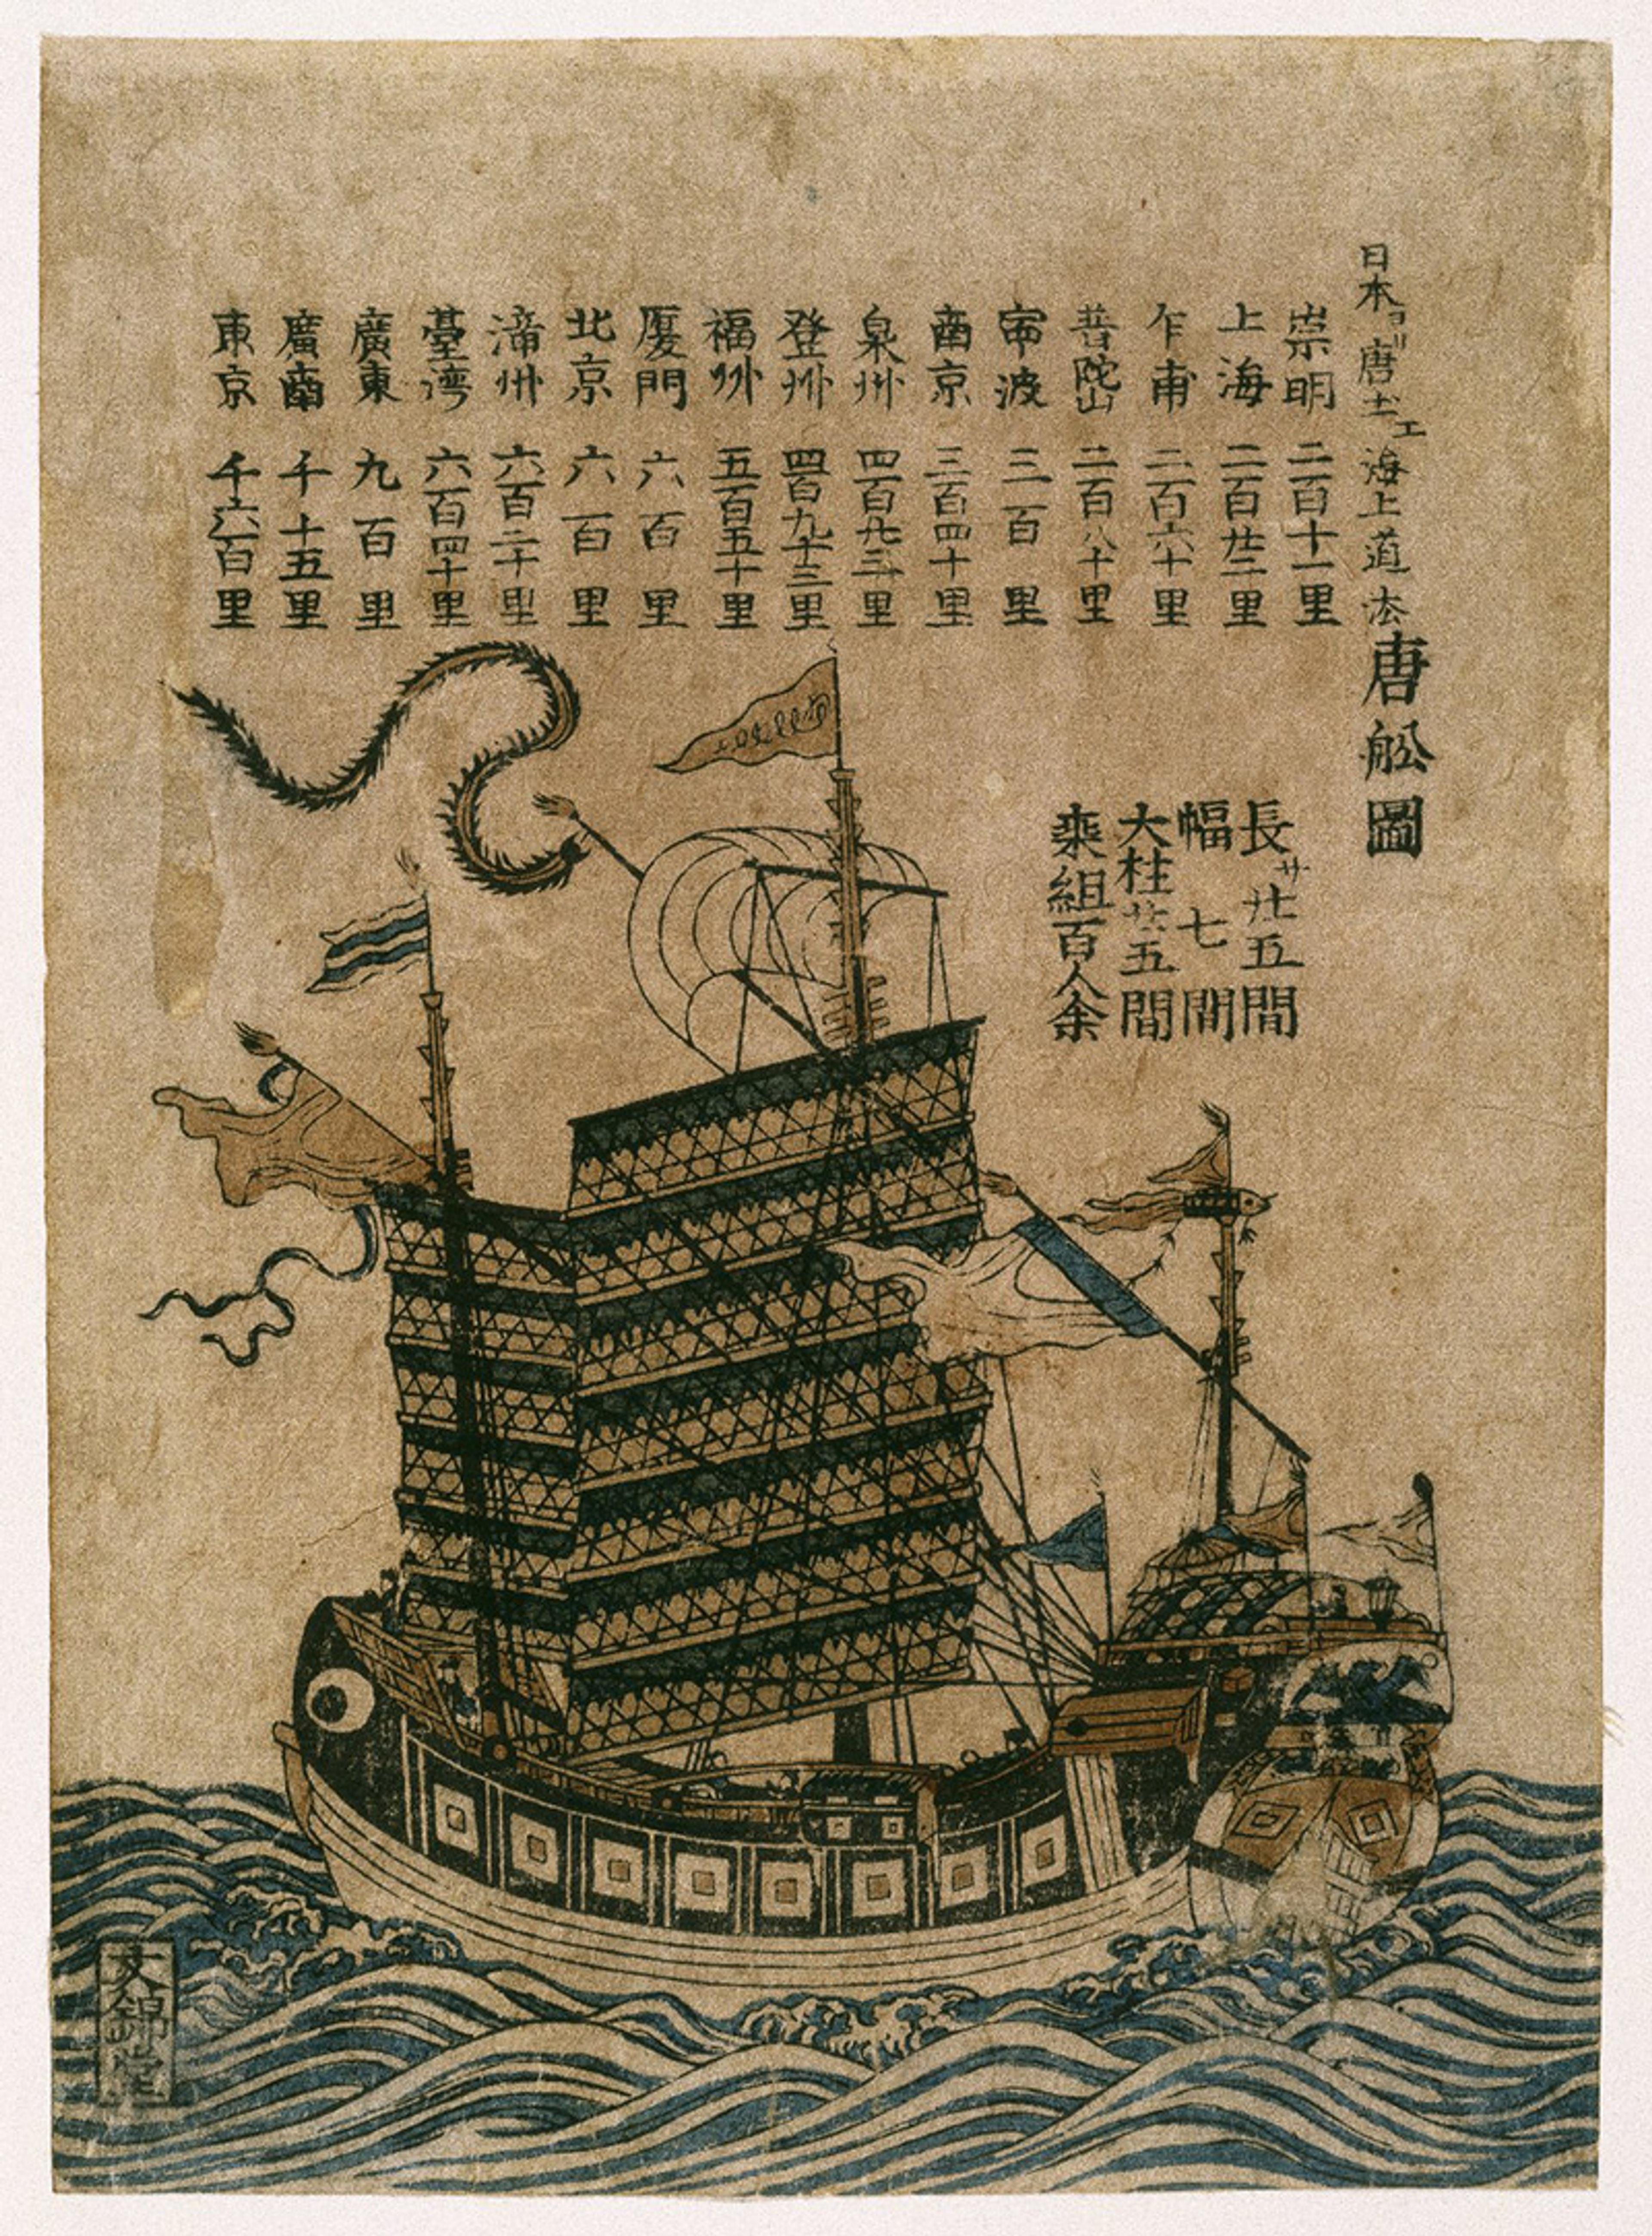 日本ヨリ唐土エ海上道法
唐舩圖
崇明 二百十一里
上海 二百廿二里
乍甫 二百六十里
普陀山 二百八十里
寧波 三百里
南京 三百四十里
泉州 四百九十三里
登州 四百九十三里
福州 五百五十里
厦門 六百里
北京 六百里
漳州 六百二十里
臺湾 六百四十里
廣東 九百里
廣南 千十五里
東京 千六百里
長サ廿五間
幅七間
大柱廿五間
乗組百人余
文錦堂